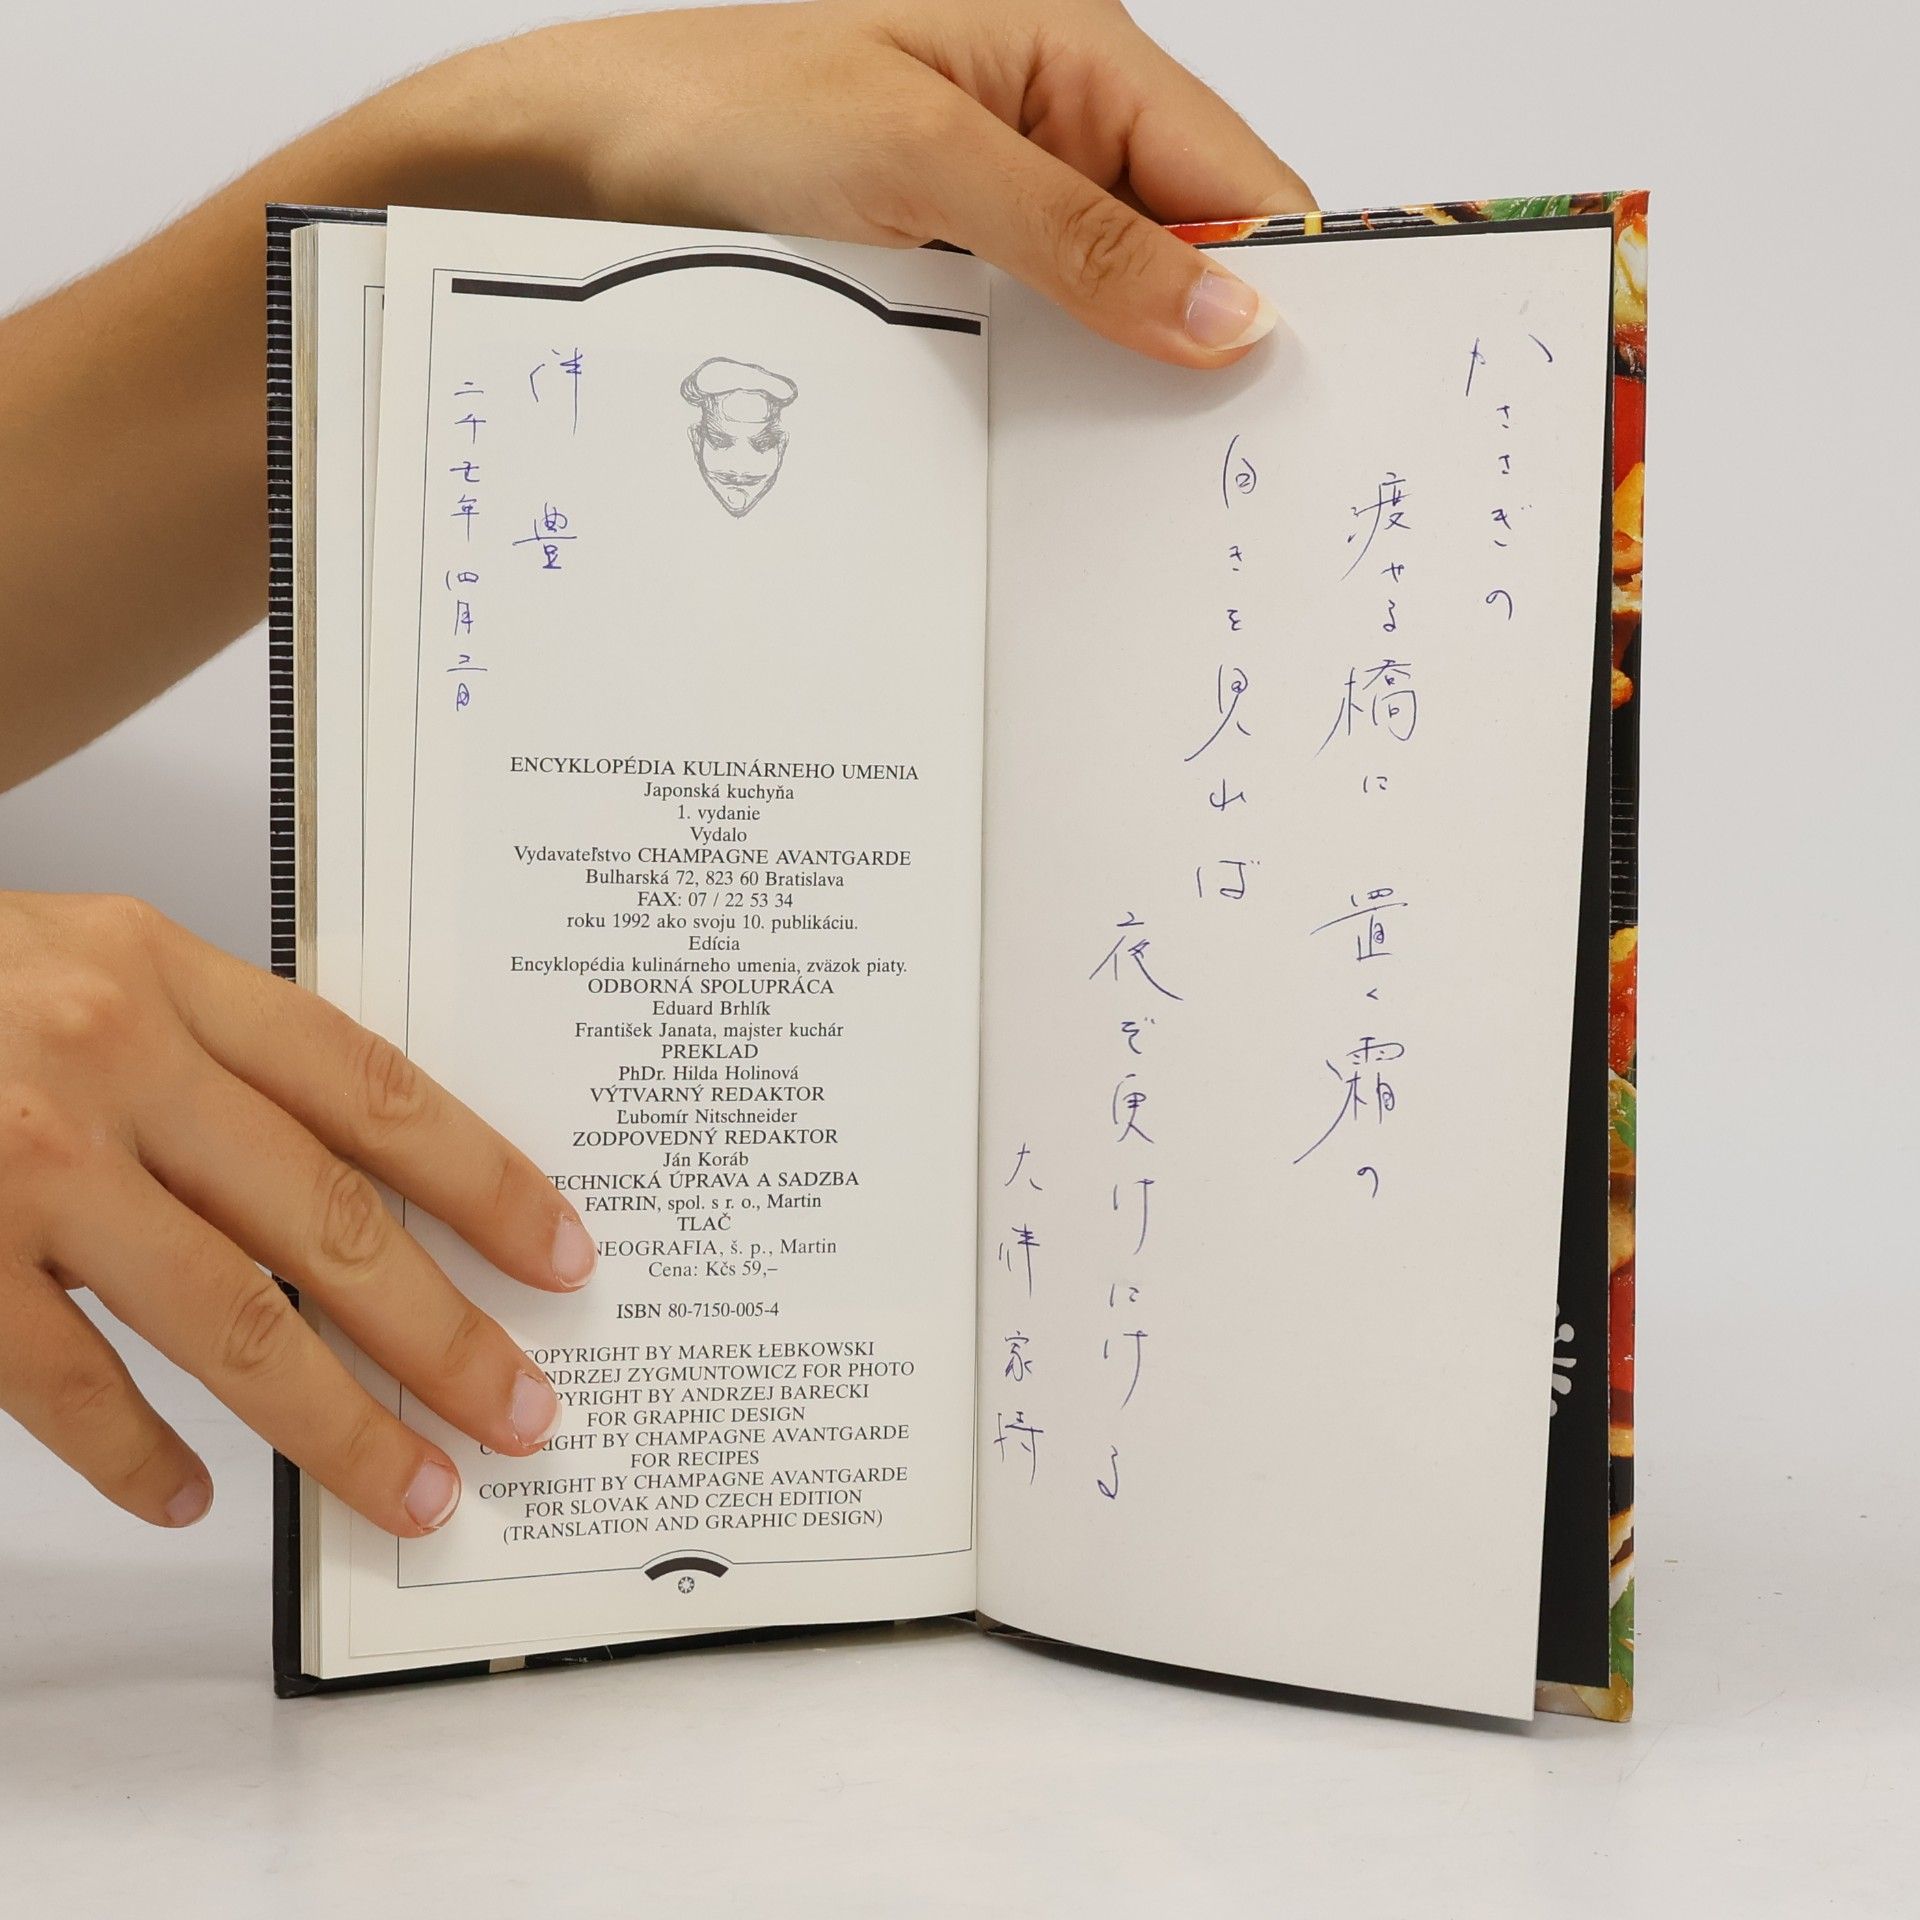 伴 豊
二千七年 四月二日
ENCYKLOPÉDIA KULINÁRNEHO UMENIA
Japonská kuchyňa
1. vydanie
Vydalo
Vydavateľstvo CHAMPAGNE AVANTGARDE
Bulharská 72, 823 60 Bratislava
FAX: 07 / 22 53 34
roku 1992 ako svoju 10. publikáciu.
Edícia
Encyklopédia kulinárneho umenia, zväzok piaty.
ODBORNÁ SPOLUPRÁCA
Eduard Brhlík
František Janata, majster kuchár
PREKLAD
PhDr. Hilda Holinová
VÝTVARNÝ REDAKTOR
Ľubomír Nitschneider
ZODPOVEDNÝ REDAKTOR
Ján Koráb
TECHNICKÁ ÚPRAVA A SADZBA
FATRIN, spol. s r. o., Martin
TLAČ
NEOGRAFIA, š. p., Martin
Cena: Kčs 59,–
ISBN 80-7150-005-4
COPYRIGHT BY MAREK ŁEBKOWSKI
ANDRZEJ ZYGMUNTOWICZ FOR PHOTO
COPYRIGHT BY ANDRZEJ BARECKI
FOR GRAPHIC DESIGN
COPYRIGHT BY CHAMPAGNE AVANTGARDE
FOR RECIPES
COPYRIGHT BY CHAMPAGNE AVANTGARDE
FOR SLOVAK AND CZECH EDITION
(TRANSLATION AND GRAPHIC DESIGN)
かささぎの
渡せる橋に 置く霜の
白きを見れば
夜ぞ更けにける
大伴家持